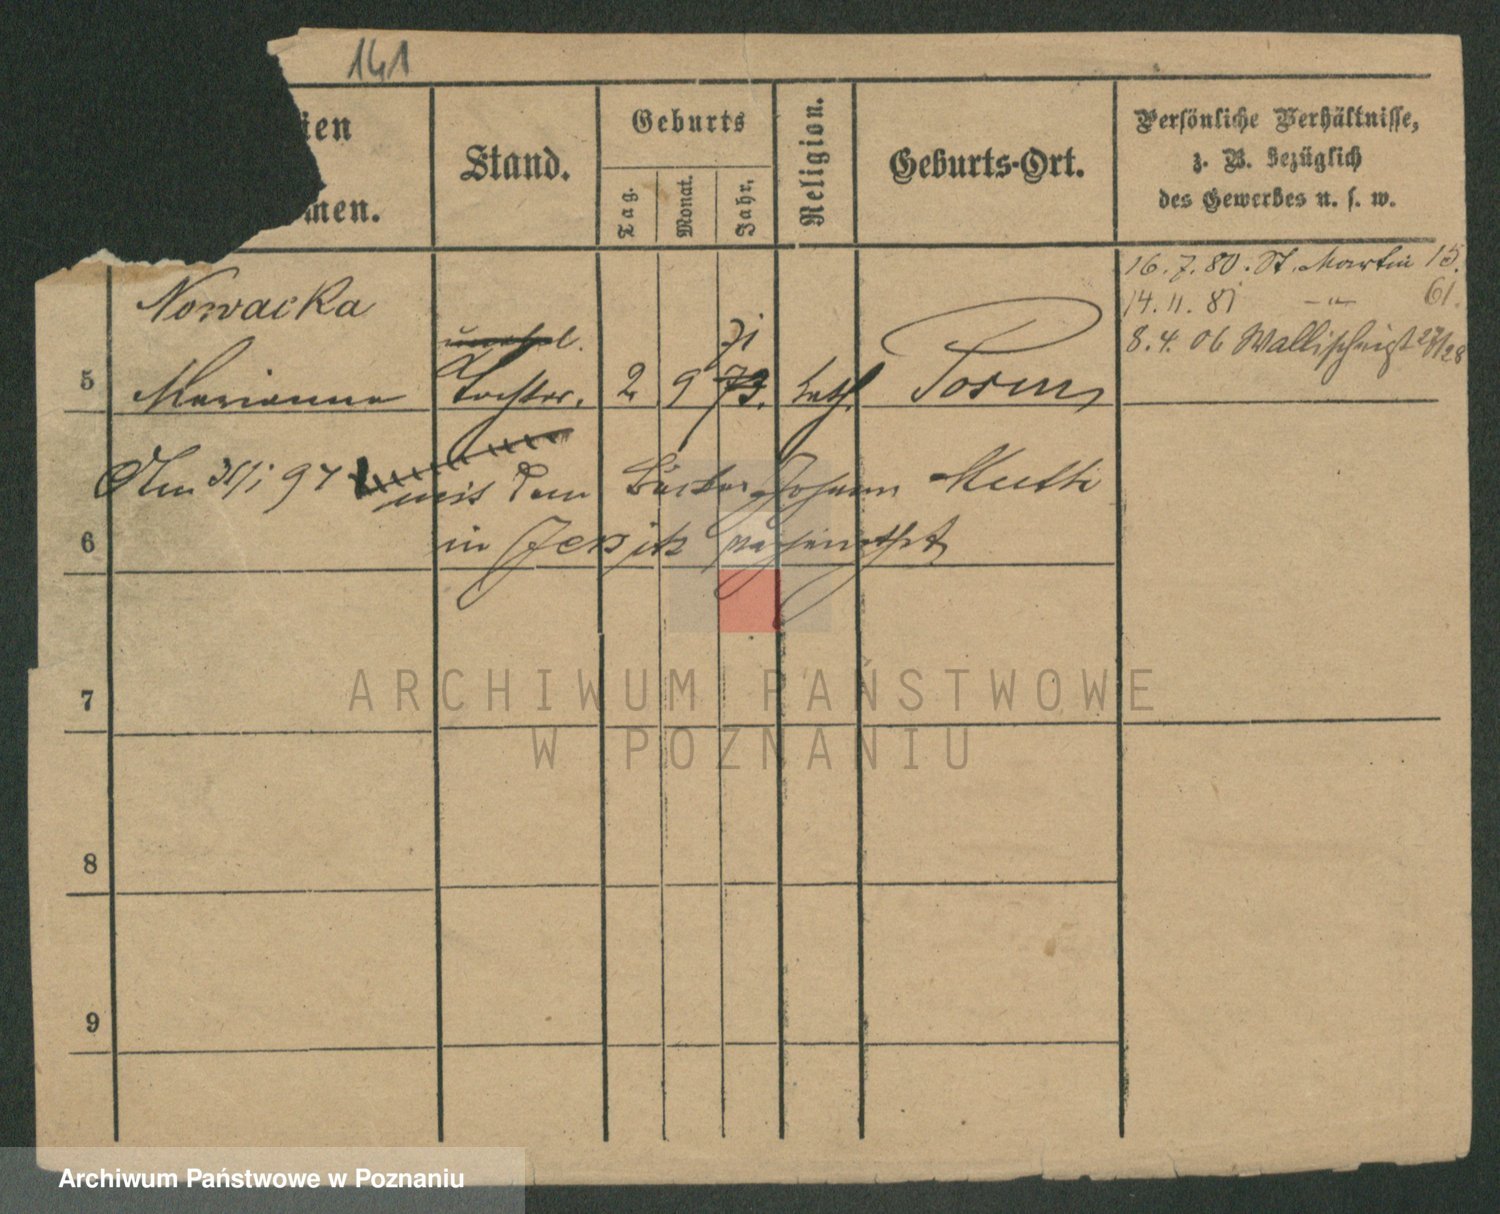 141
ien
men.
Stand.
Geburts
Tag.
Monat.
Jahr.
Religion.
Geburts-Ort.
Persönliche Verhältnisse,
z. B. bezüglich
des Gewerbes u. s. w.
16. 7. 80. St. Martin 15.
14. 11. 81 -"- 61.
8. 4. 06 Wallischeigst 27/28
Nowacka
71
5 Marianna Tochter. 2 9 73. kath. Posen
Am 31/1 97 mit dem Bäcker Johann Mutki
6 in Jersitz verheirathet
7
8
9
ARCHIWUM PAŃSTWOWE
W POZNANIU
Archiwum Państwowe w Poznaniu